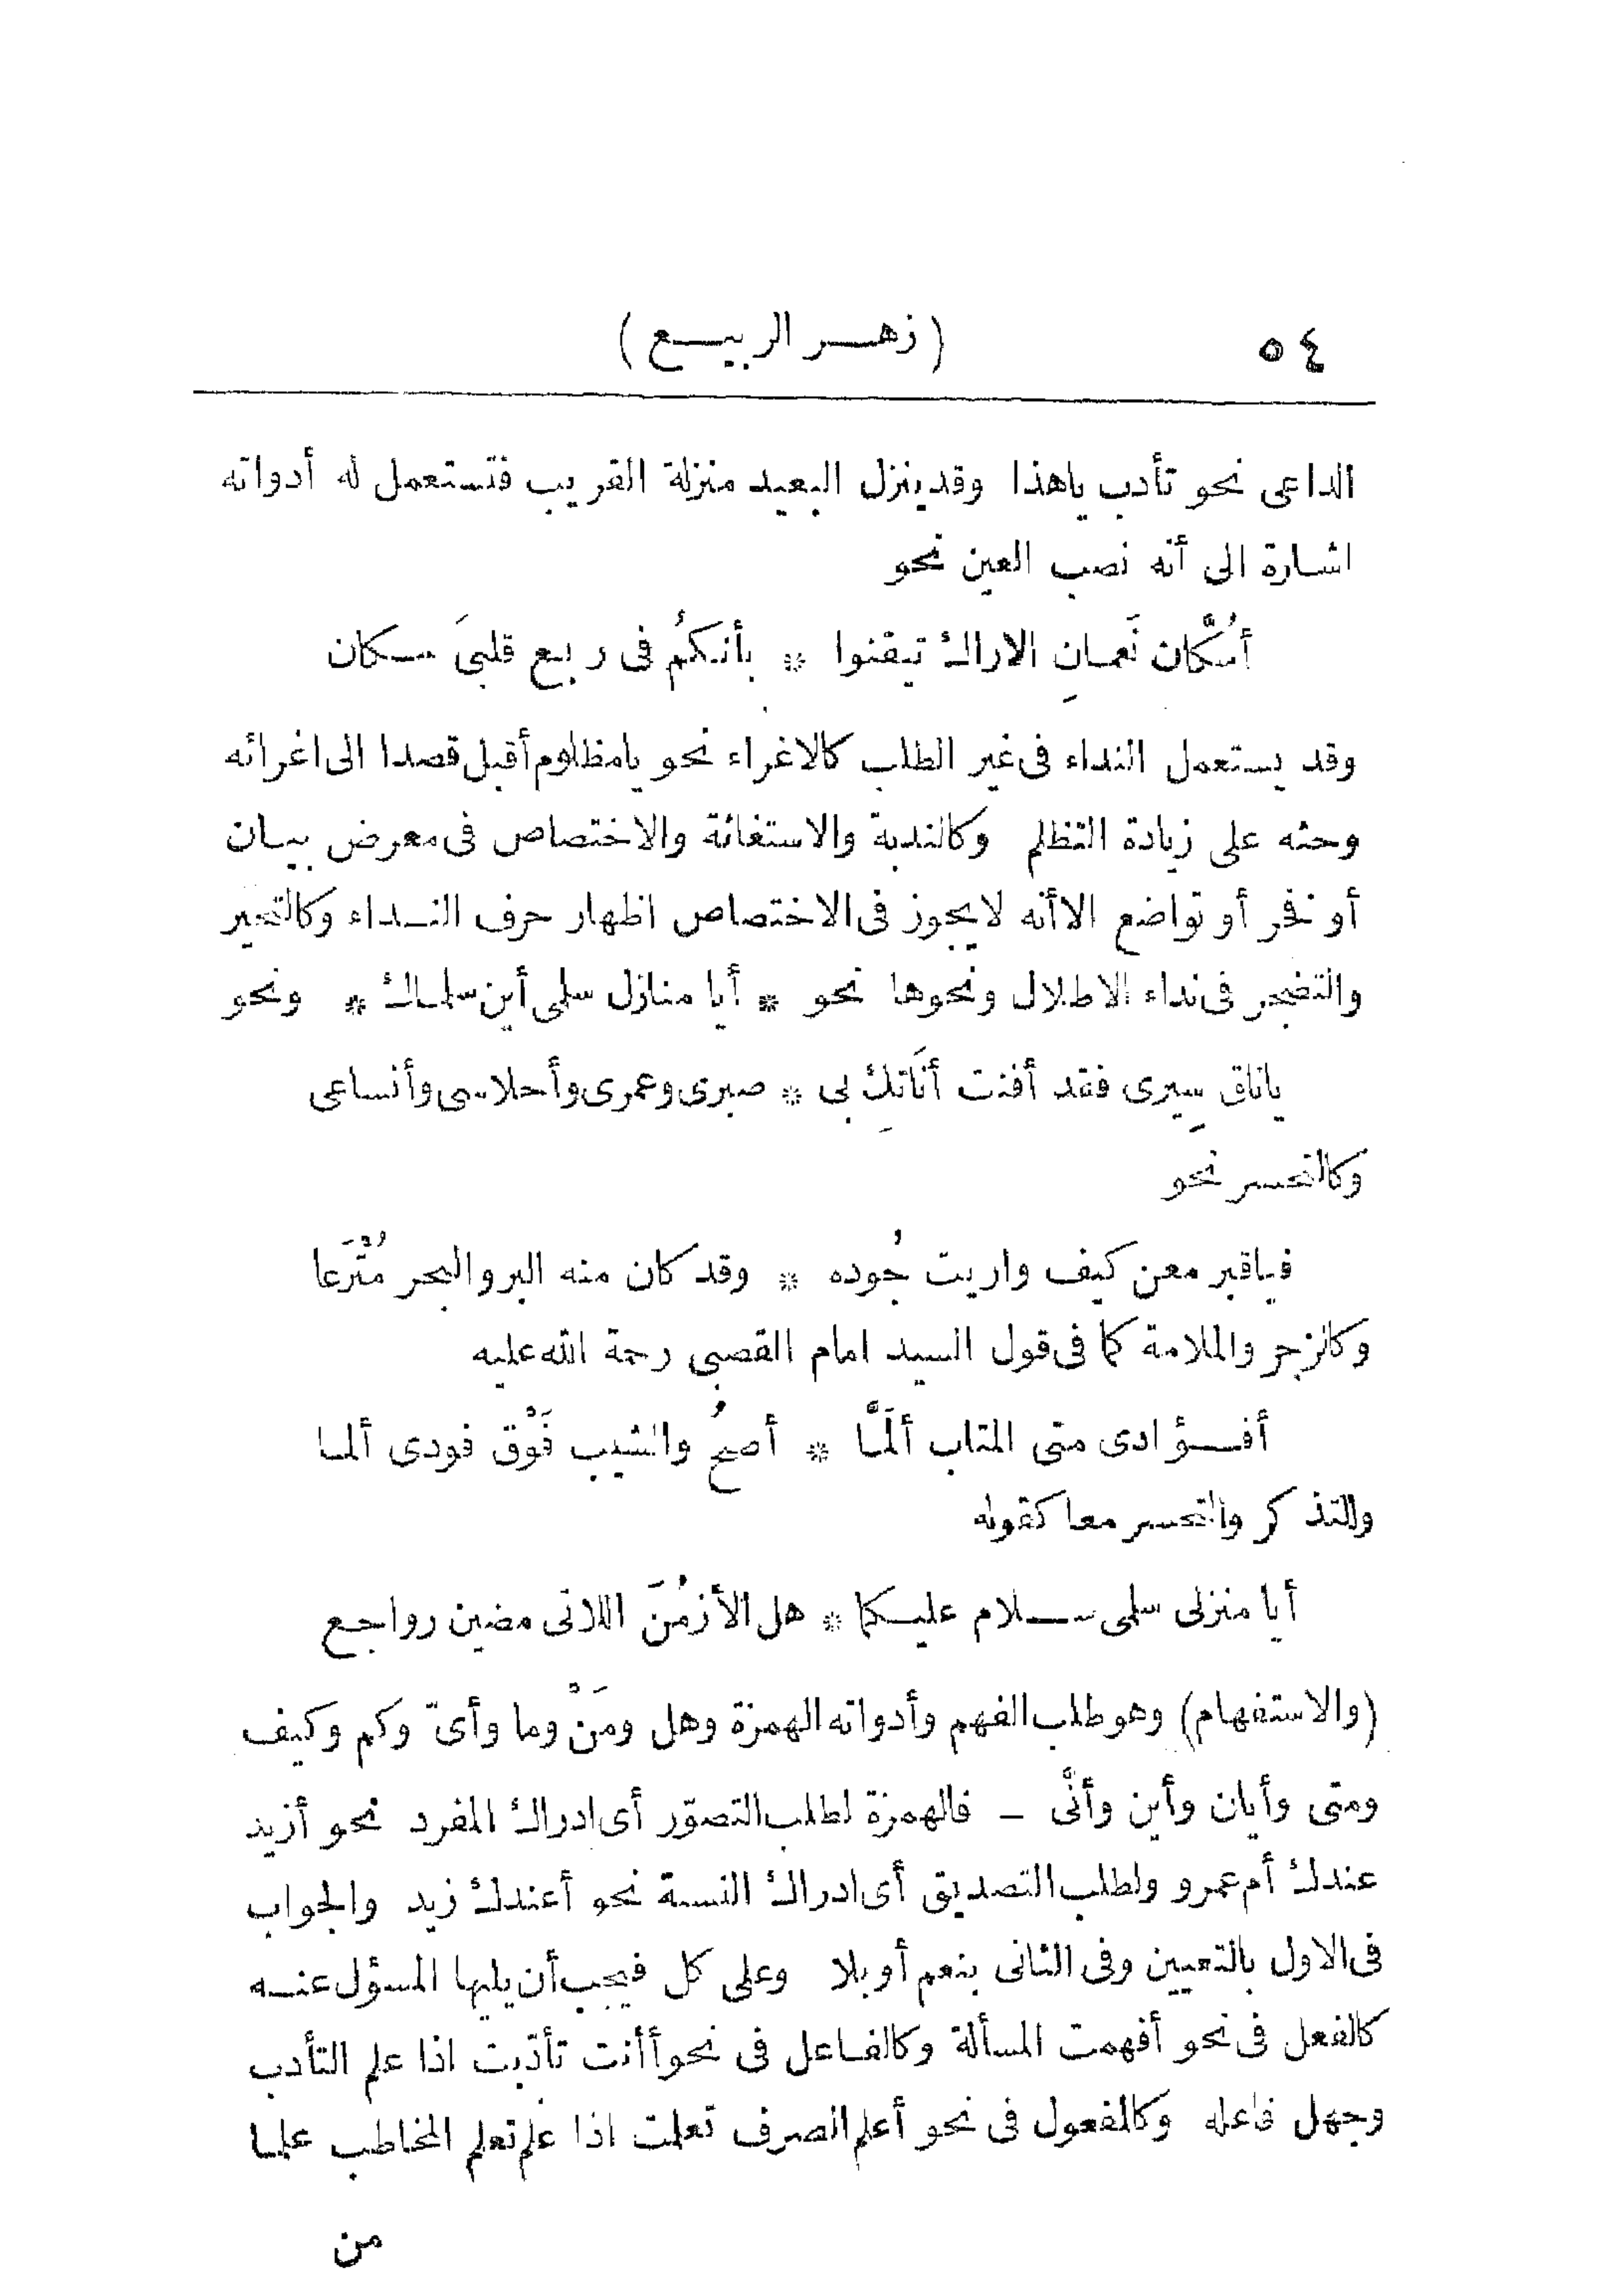 ٥٤
(زهر الربيع)
الداعى نحو تأدب ياهذا وقد ينزل البعيد منزلة القريب فتستعمل له أدواته
اشارة الى أنه نصب العين نحو
أسُكَّان نَعمانِ الاراك تيقنوا * بأنكمُ فى ربع قلبىَ سكان
وقد يستعمل النداء فى غير الطلب كالاغراء نحو يا مظلوم أقبل قصدا الى اغرائه
وحثه على زيادة التظلم وكالندبة والاستغاثة والاختصاص فى معرض بيان
أو نفخر أو تواضع الا أنه لا يجوز فى الاختصاص اظهار حرف النداء وكالتحير
والتضجر فى نداء الاطلال ونحوها نحو * أيا منازل سلمى أين سلماك * ونحو
ياناق سِيرى فقد أفنت أنَاتكِ بى * صبرى وعمرى وأحلاسى وأنساعى
وكالتحسر نحو
فياقبر معن كيف واريت جُوده * وقد كان منه البر والبحر مُتْرَعا
وكالزجر والملامة كما فى قول السيد امام القصبى رحمة الله عليه
أفؤادى متى المتاب ألَمَّا * أصحُ والشيب فَوْق فودى ألما
والتذكر والتحسر معا كقوله
أيا منزلى سلمى سلام عليكما * هل الأزمُنَ اللاتى مضين رواجع
(والاستفهام) وهو طلب الفهم وأدواته الهمزة وهل ومَنْ وما وأىّ وكم وكيف
ومتى وأيان وأين وأنَّى — فالهمزة لطلب التصوّر أى ادراك المفرد نحو أزيد
عندك أم عمرو ولطلب التصديق أى ادراك النسبة نحو أعندك زيد والجواب
فى الاول بالتعيين وفى الثانى بنعم أو بلا وعلى كل فيجب أن يليها المسؤل عنه
كالفعل فى نحو أفهمت المسألة وكالفاعل فى نحو أأنت تأدّبت اذا علم التأدب
وجهل فاعله وكالمفعول فى نحو أعلم الصرف تعلمت اذا علم تعلم المخاطب علما
من